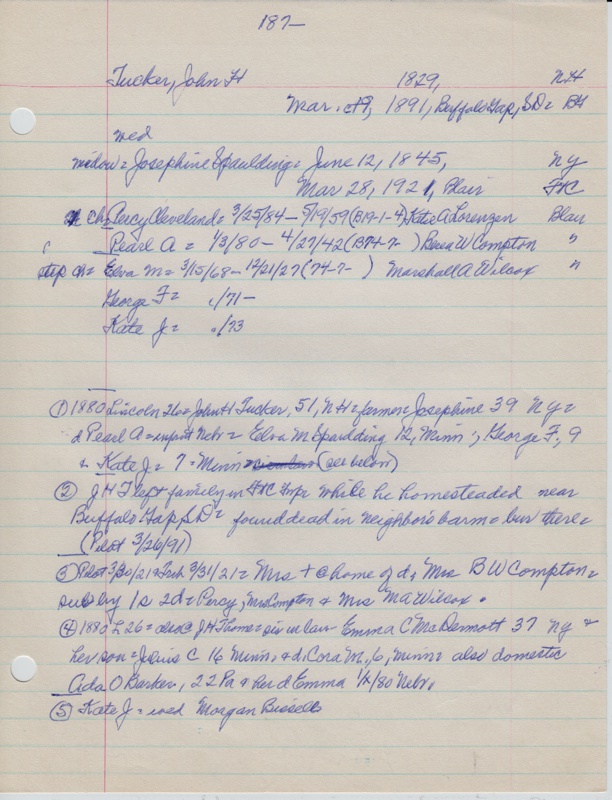 187-
Tucker, John H 1829, NH
Mar. 1891, Buffalo Gap, SD = BH
wed
widow = Josephine Spaulding = June 12, 1845, NY
Mar 28, 1921, Blair FHC
ch = Percy Cleveland = 3/25/84 - 5/19/59 (B19-1-4) Kate A Lorenzen Blair
Pearl A = 1/3/80 - 4/27/42 (B74-7- ) W Compton "
step ch = Elva M = 3/15/68 - 12/21/27 (74-7- ) Marshall A Wilcox "
George F = /71 -
Kate J = /73
① 1880 Lincoln 26 = John H Tucker, 51, NH = farmer = Josephine 39 NY =
d Pearl A = infant Nebr = Elva M Spaulding 12, Minn; George F, 9
& Kate J = 7 = Minn (see below)
② JHT left family in FHC Twp while he homesteaded near
Buffalo Gap, SD = found dead in neighbors barn = bur there =
(Pilot 3/26/91)
③ Pilot 3/30/21 & Trib 3/31/21 = Mrs T @ home of d, Mrs B W Compton =
surv by 1s 2d = Percy, Mrs Compton & Mrs MA Wilcox.
④ 1880 L 26 = also @ JHT home = sis in law Emma C McDermott 37 NY &
her son = Julius C 16 Minn, & d, Cora M, 6, Minn = also domestic
Ada O Barker, 22 Pa & her d Emma 1/2/80 Nebr.
⑤ Kate J = wed Morgan Bissell